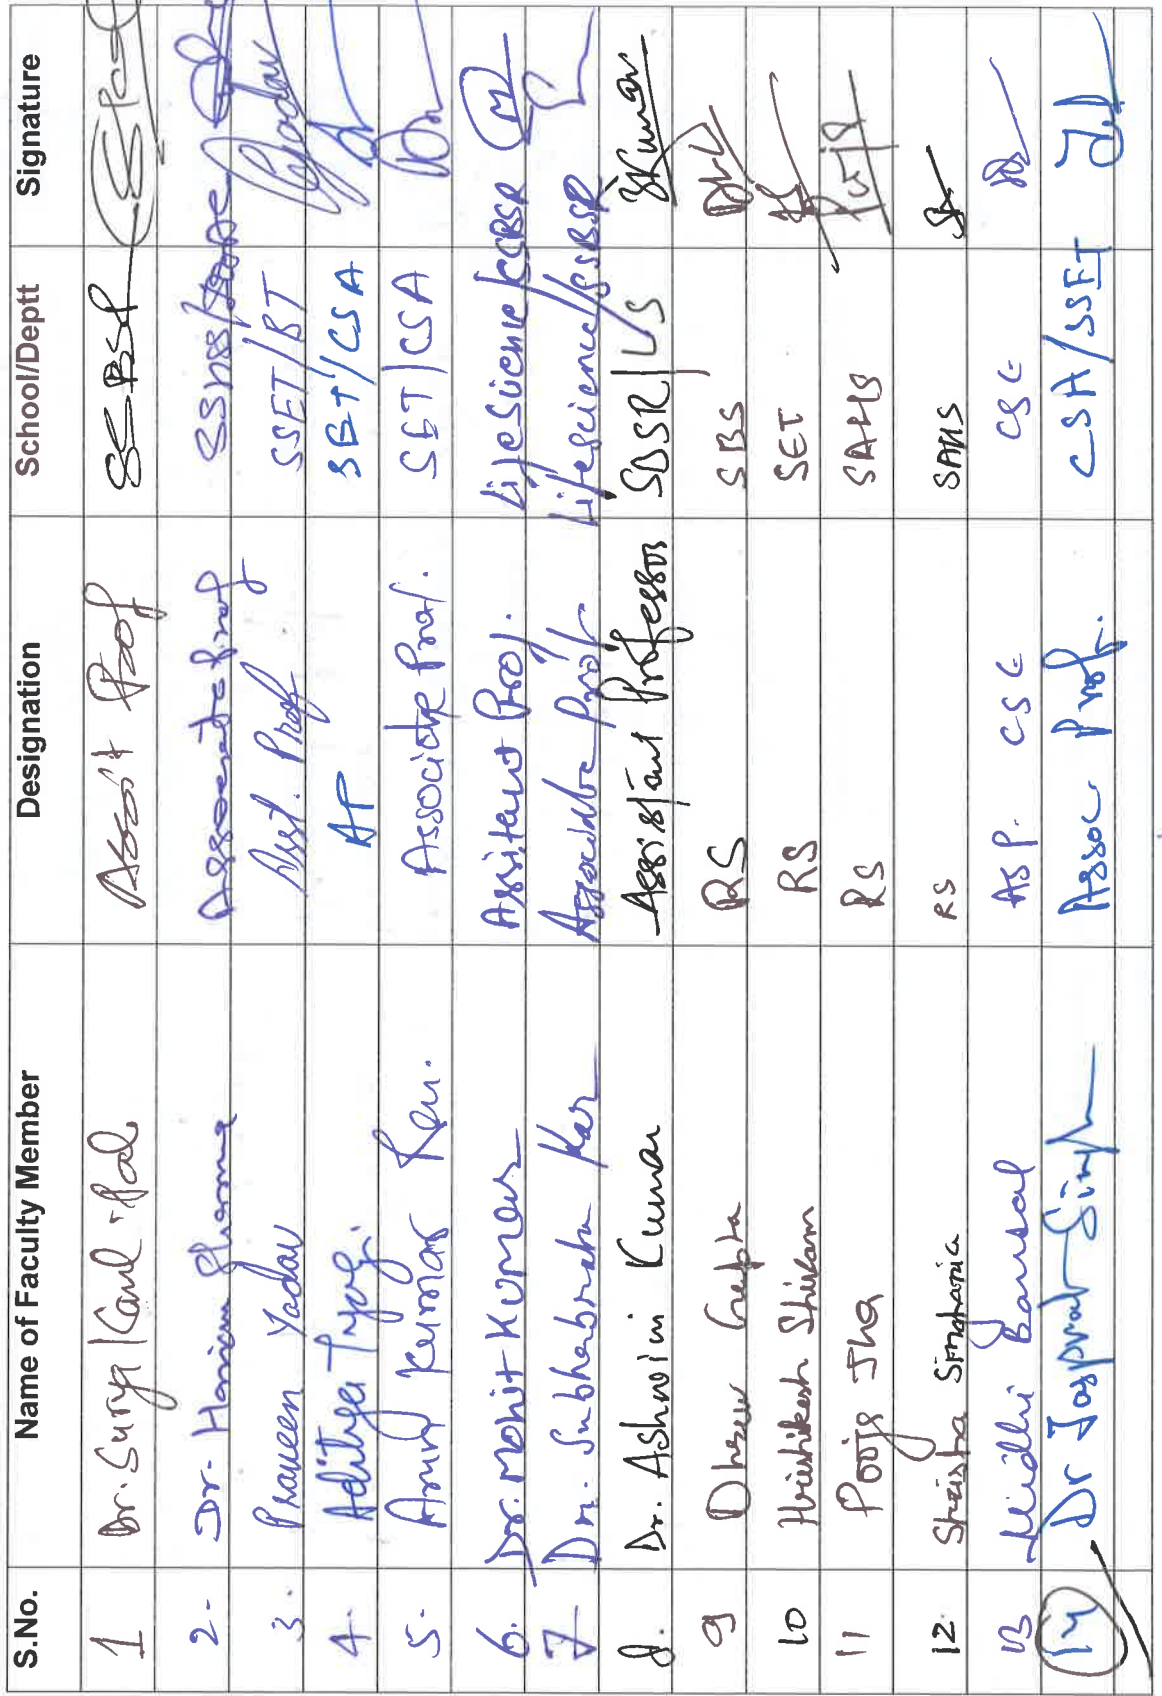 S.No. Name of Faculty Member Designation School/Deptt Signature
1 Dr. Surya Kant Pal Assit Prof SSBSR
2- Dr. Sharma Associate Prof
3. Praveen Yadav Asst. Prof SSET/BT Yadav
4. Aditya Tyagi. AP SET/CSA
5. Kumar Associate Prof. SET/CSA
6. Dr. Mohit Kumar Assitant Prof. Life Science/SSBSR
7 Dr. Subhabrata Kar Associate Prof Lifescience/SSBSR
8. Dr. Ashwin Kumar Assistant Professor SBSR/LS Kumar
9 Dhruv Gupta RS SBS
10 Hrishikesh Shivam RS SET
11 Pooja Jha RS SAHS Pooja
12. Shrishta Simoharia RS SAHS
13 Nidhi Bansal ASP. CSE CSE
14 Dr Jaspreet Singh Assoc Prof. CSA/SSET